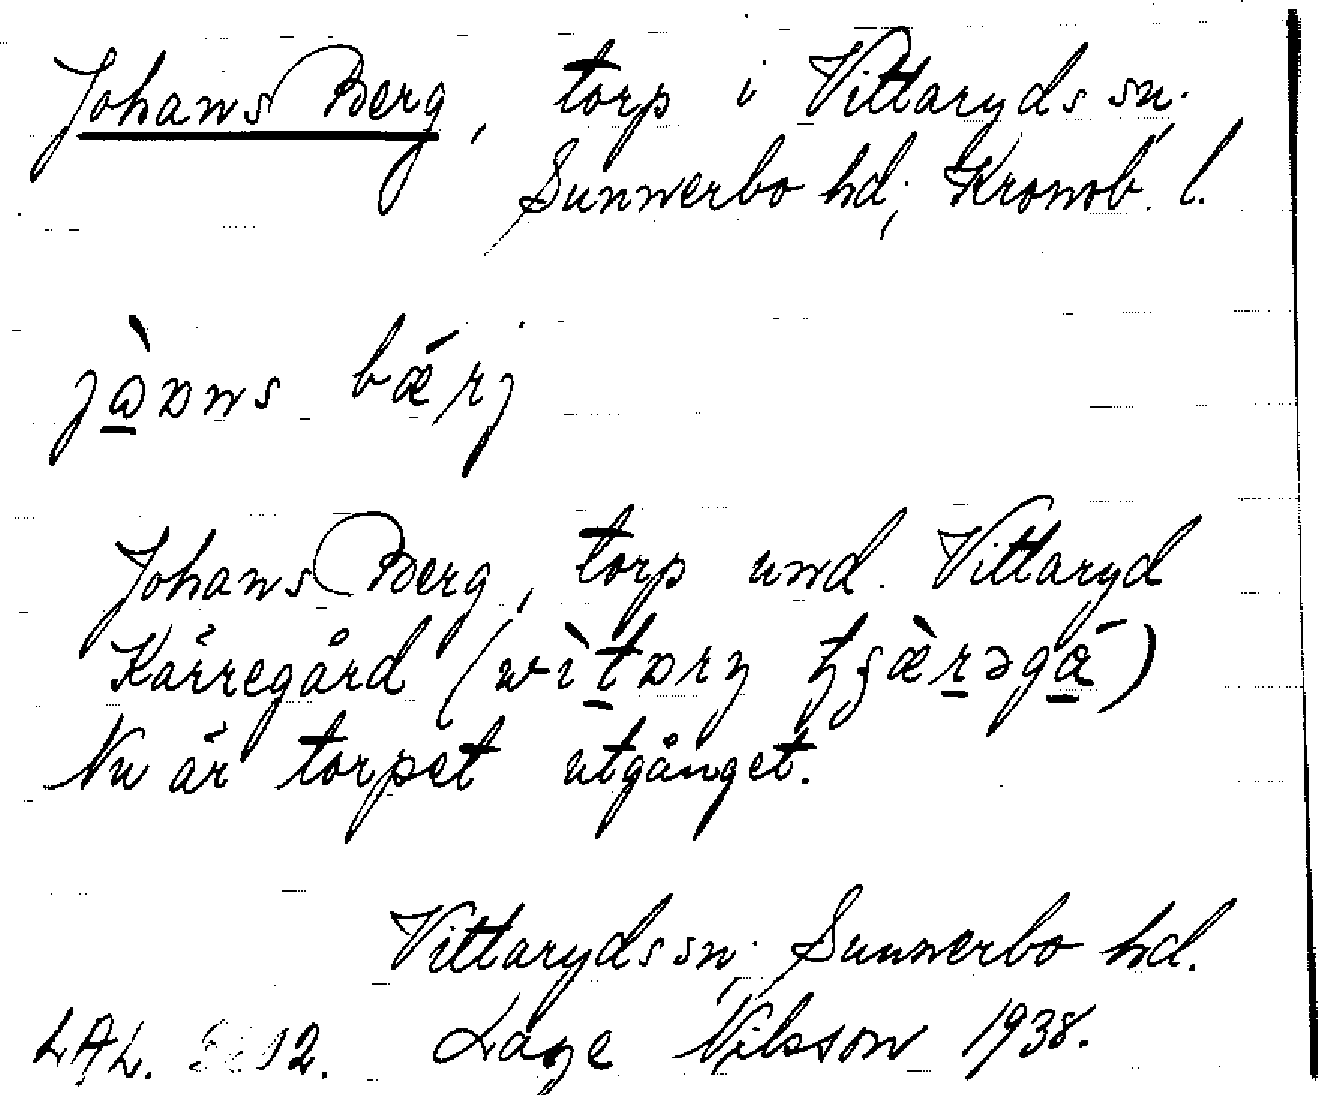 Johans Berg, torp i Vittaryds sn.
Sunnerbo hd, Kronob. l.
jɑ̀ɒns bǽrj
Johans Berg, torp und. Vittaryd
Kärregård (vìtɒry tʃæ̀rəgá)
Nu är torpet utgånget.
Vittaryds sn, Sunnerbo hd.
LAL. Lage Nilsson 1938.